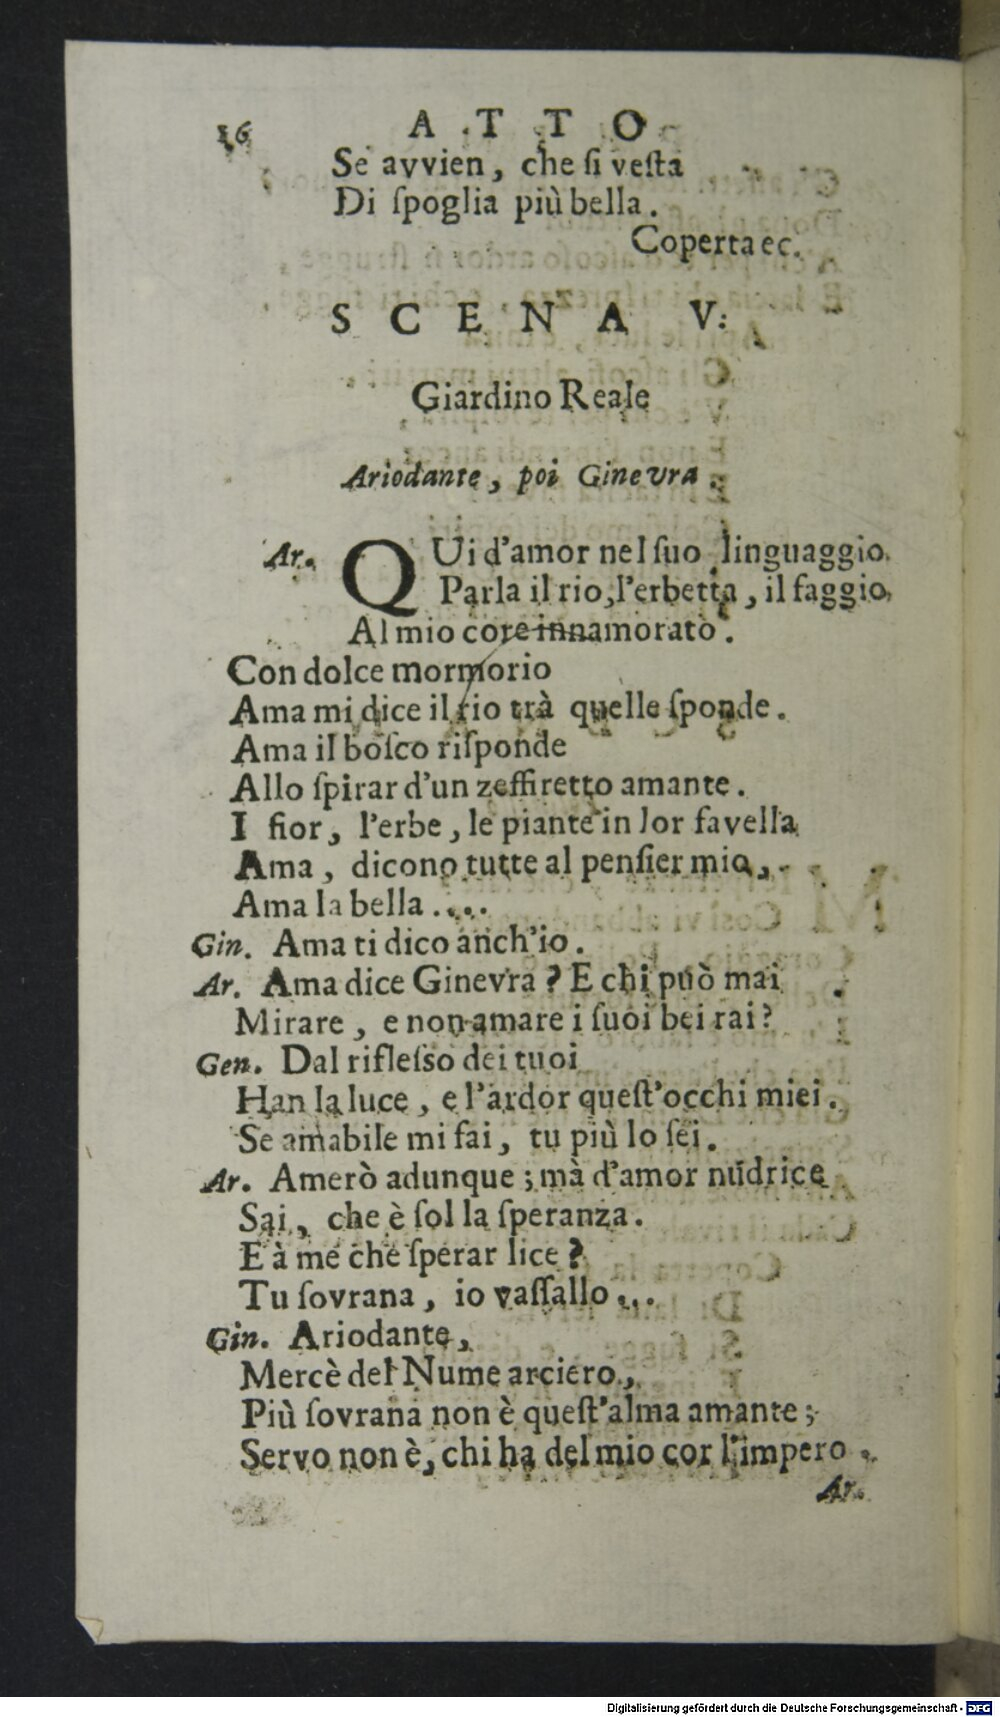 16 ATTO
Se avvien, che ſi veſta
Di ſpoglia più bella.
Coperta ec.
SCENA V.
Giardino Reale
Ariodante, poi Ginevra.
Ar. QUi d'amor nel ſuo linguaggio
Parla il rio, l'erbetta, il faggio,
Al mio core innamorato.
Con dolce mormorio
Ama mi dice il rio trà quelle ſponde.
Ama il boſco riſponde
Allo ſpirar d'un zeffiretto amante.
I fior, l'erbe, le piante in lor favella
Ama, dicono tutte al penſier mio,
Ama la bella....
Gin. Ama ti dico anch'io.
Ar. Ama dice Ginevra? E chi può mai
Mirare, e non amare i ſuoi bei rai?
Gen. Dal rifleſso dei tuoi
Han la luce, e l'ardor queſt'occhi miei.
Se amabile mi fai, tu più lo ſei.
Ar. Amerò adunque; mà d'amor nudrice
Sai, che è ſol la ſperanza.
E à me che ſperar lice?
Tu ſovrana, io vaſſallo...
Gin. Ariodante,
Mercè del Nume arciero,
Più ſovrana non è queſt'alma amante;
Servo non è, chi ha del mio cor l'impero.
Ar.
Digitalisierung gefördert durch die Deutsche Forschungsgemeinschaft - DFG